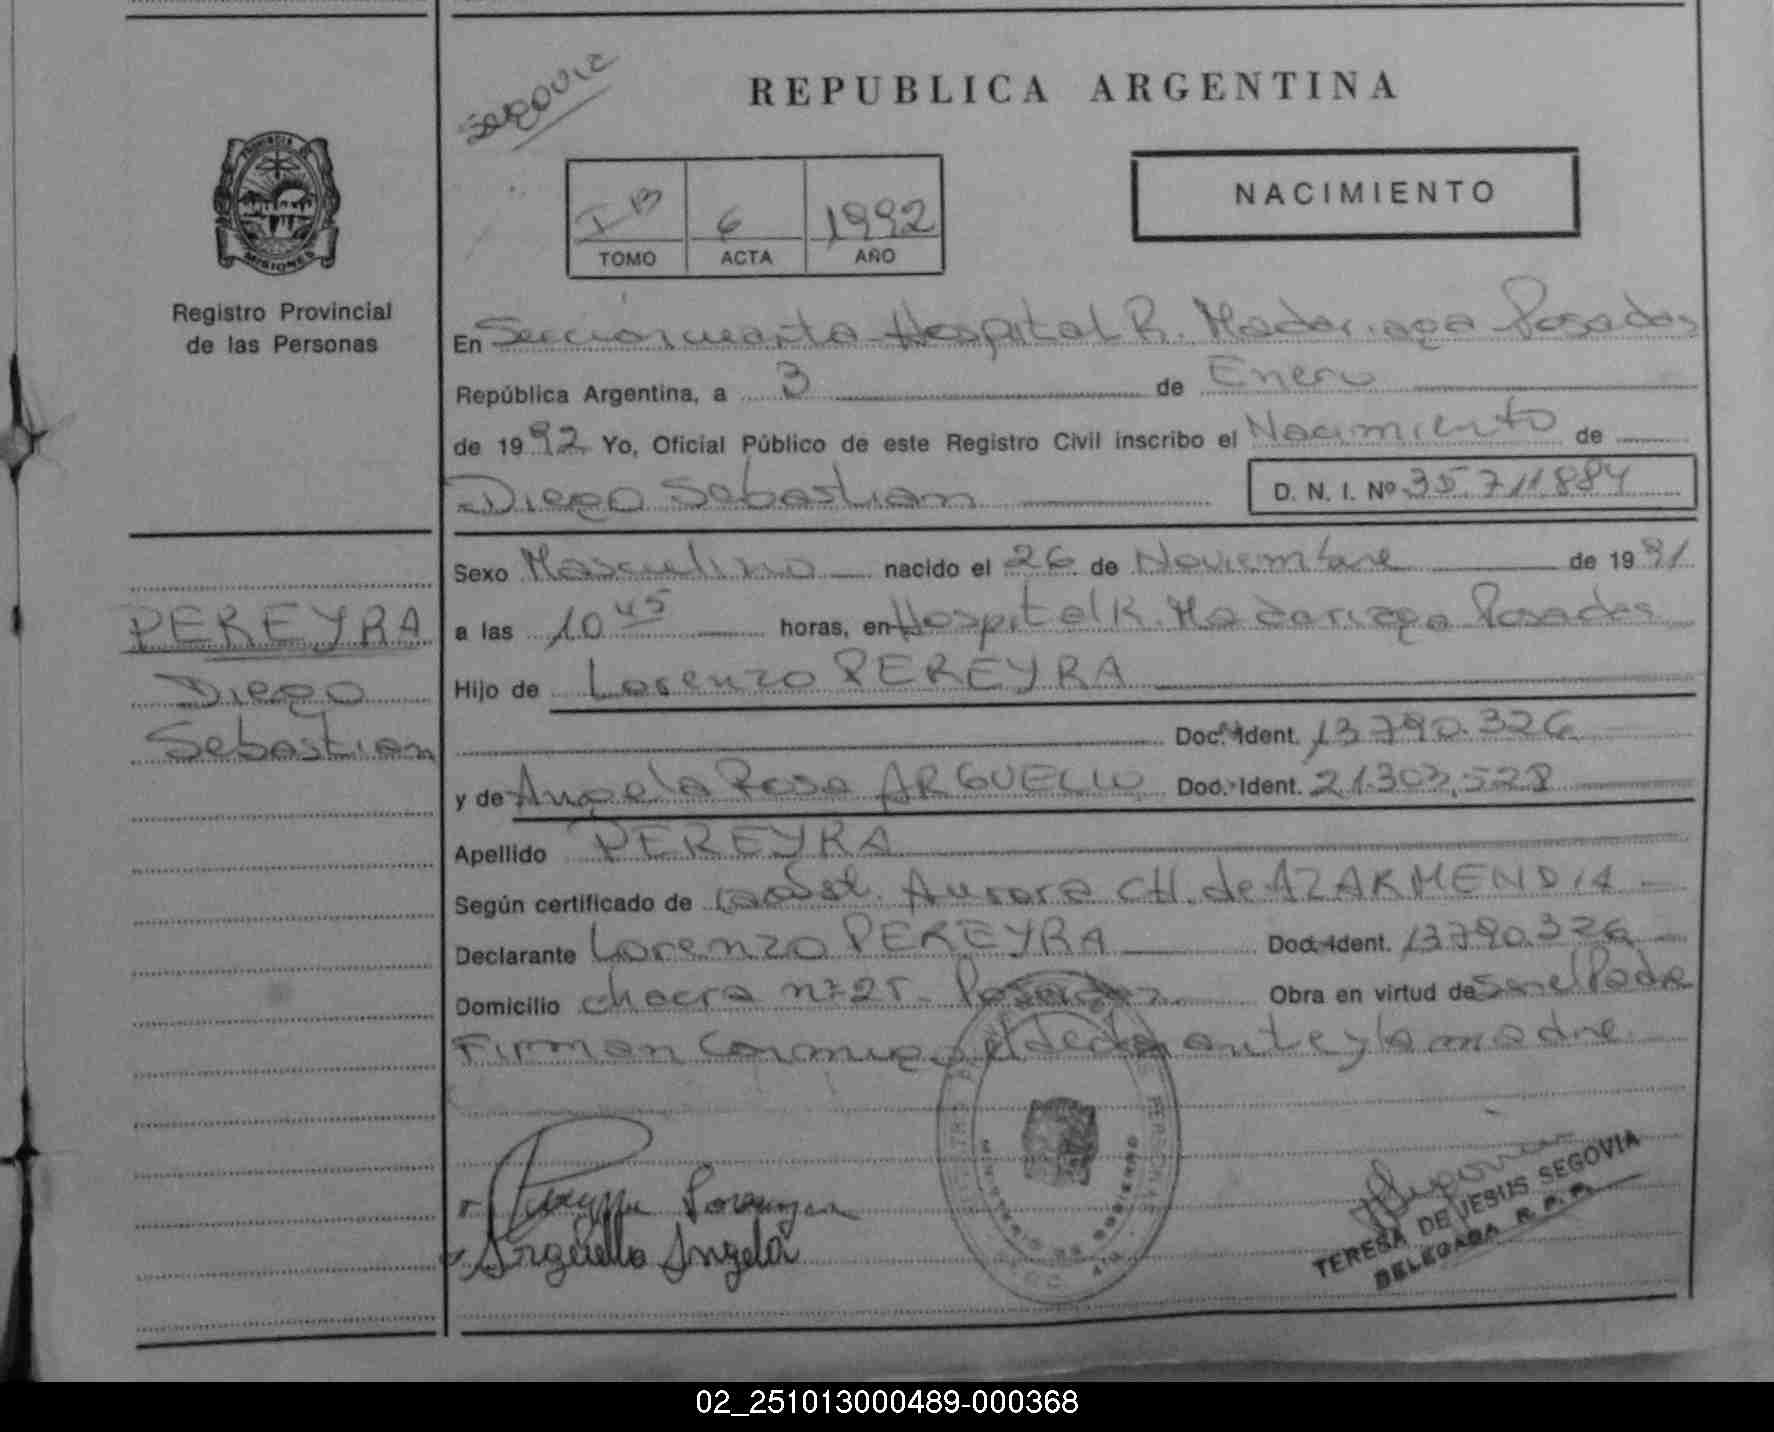 SEGOVIA
REPUBLICA ARGENTINA
PROVINCIA DE
MISIONES
Registro Provincial
de las Personas
I B 6 1992
TOMO ACTA AÑO
NACIMIENTO
En Sección cuarta Hospital R. Madariaga Posadas
República Argentina, a 3 de Enero
de 1992 Yo, Oficial Público de este Registro Civil inscribo el Nacimiento de
Diego Sebastian D. N. I. Nº 35.711884
Sexo Masculino nacido el 26 de Noviembre de 1991
a las 10 45 horas, en Hospital R. Madariaga Posadas
Hijo de Lorenzo PEREYRA
Doc. Ident. 13790.326
y de Angela Rosa ARGUELLO Doc. Ident. 21.303.528
Apellido PEREYRA
Según certificado de Aurora CH. de AZARMENDIA
Declarante Lorenzo PEREYRA Doc. Ident. 13790.326
Domicilio chacra nº 25 - Posadas Obra en virtud de Ser el Padre
Firman conmigo, el declarante y la madre.
PEREYRA
Diego
Sebastian
Pereyra Lorenzo
Arguello Angela
MINISTERIO DE GOBIERNO
Segovia
TERESA DE JESUS SEGOVIA
DELEGADA R. P. P.
02_251013000489-000368